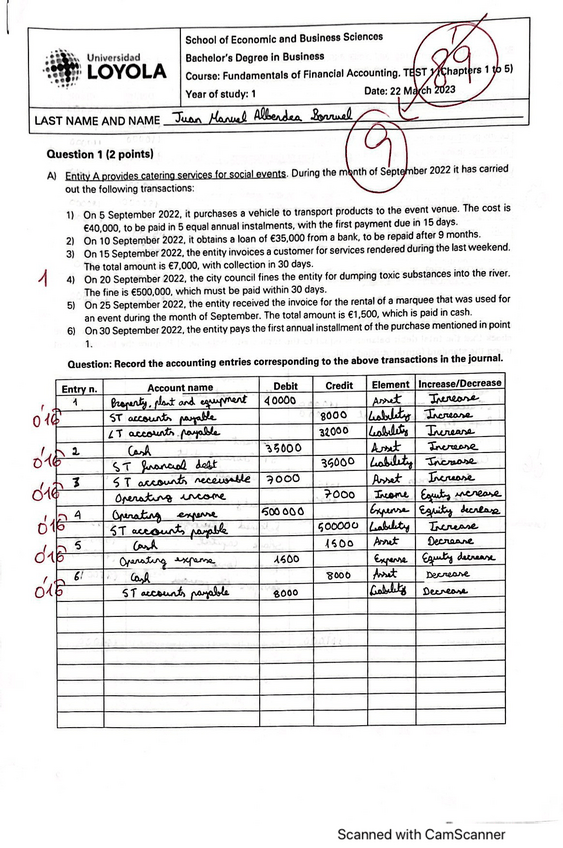 Universidad
LOYOLA
School of Economic and Business Sciences
Bachelor's Degree in Business
Course: Fundamentals of Financial Accounting. TEST 1 (Chapters 1 to 5)
Year of study: 1 Date: 22 March 2023
89
9
LAST NAME AND NAME Juan Manuel
Question 1 (2 points)
A) Entity A provides catering services for social events. During the month of September 2022 it has carried
out the following transactions:
1) On 5 September 2022, it purchases a vehicle to transport products to the event venue. The cost is
€40,000, to be paid in 5 equal annual instalments, with the first payment due in 15 days.
2) On 10 September 2022, it obtains a loan of €35,000 from a bank, to be repaid after 9 months.
3) On 15 September 2022, the entity invoices a customer for services rendered during the last weekend.
The total amount is €7,000, with collection in 30 days.
1 4) On 20 September 2022, the city council fines the entity for dumping toxic substances into the river.
The fine is €500,000, which must be paid within 30 days.
5) On 25 September 2022, the entity received the invoice for the rental of a marquee that was used for
an event during the month of September. The total amount is €1,500, which is paid in cash.
6) On 30 September 2022, the entity pays the first annual installment of the purchase mentioned in point
1.
Question: Record the accounting entries corresponding to the above transactions in the journal.
Entry n. Account name Debit Credit Element Increase/Decrease
1 Property, plant and equipment 40000 Asset Increase
0'16 ST accounts payable 8000 Liability Increase
LT accounts payable 32000 Liability Increase
2 Cash 35000 Asset Increase
0'16 ST financial debt 35000 Liability Increase
3 ST accounts receivable 7000 Asset Increase
0'16 Operating income 7000 Income Equity increase
4 Operating expense 500000 Expense Equity decrease
0'16 ST accounts payable 500000 Liability Increase
5 Cash 1500 Asset Decrease
0'16 Operating expense 1500 Expense Equity decrease
6 Cash 8000 Asset Decrease
0'16 ST accounts payable 8000 Liability Decrease
Scanned with CamScanner